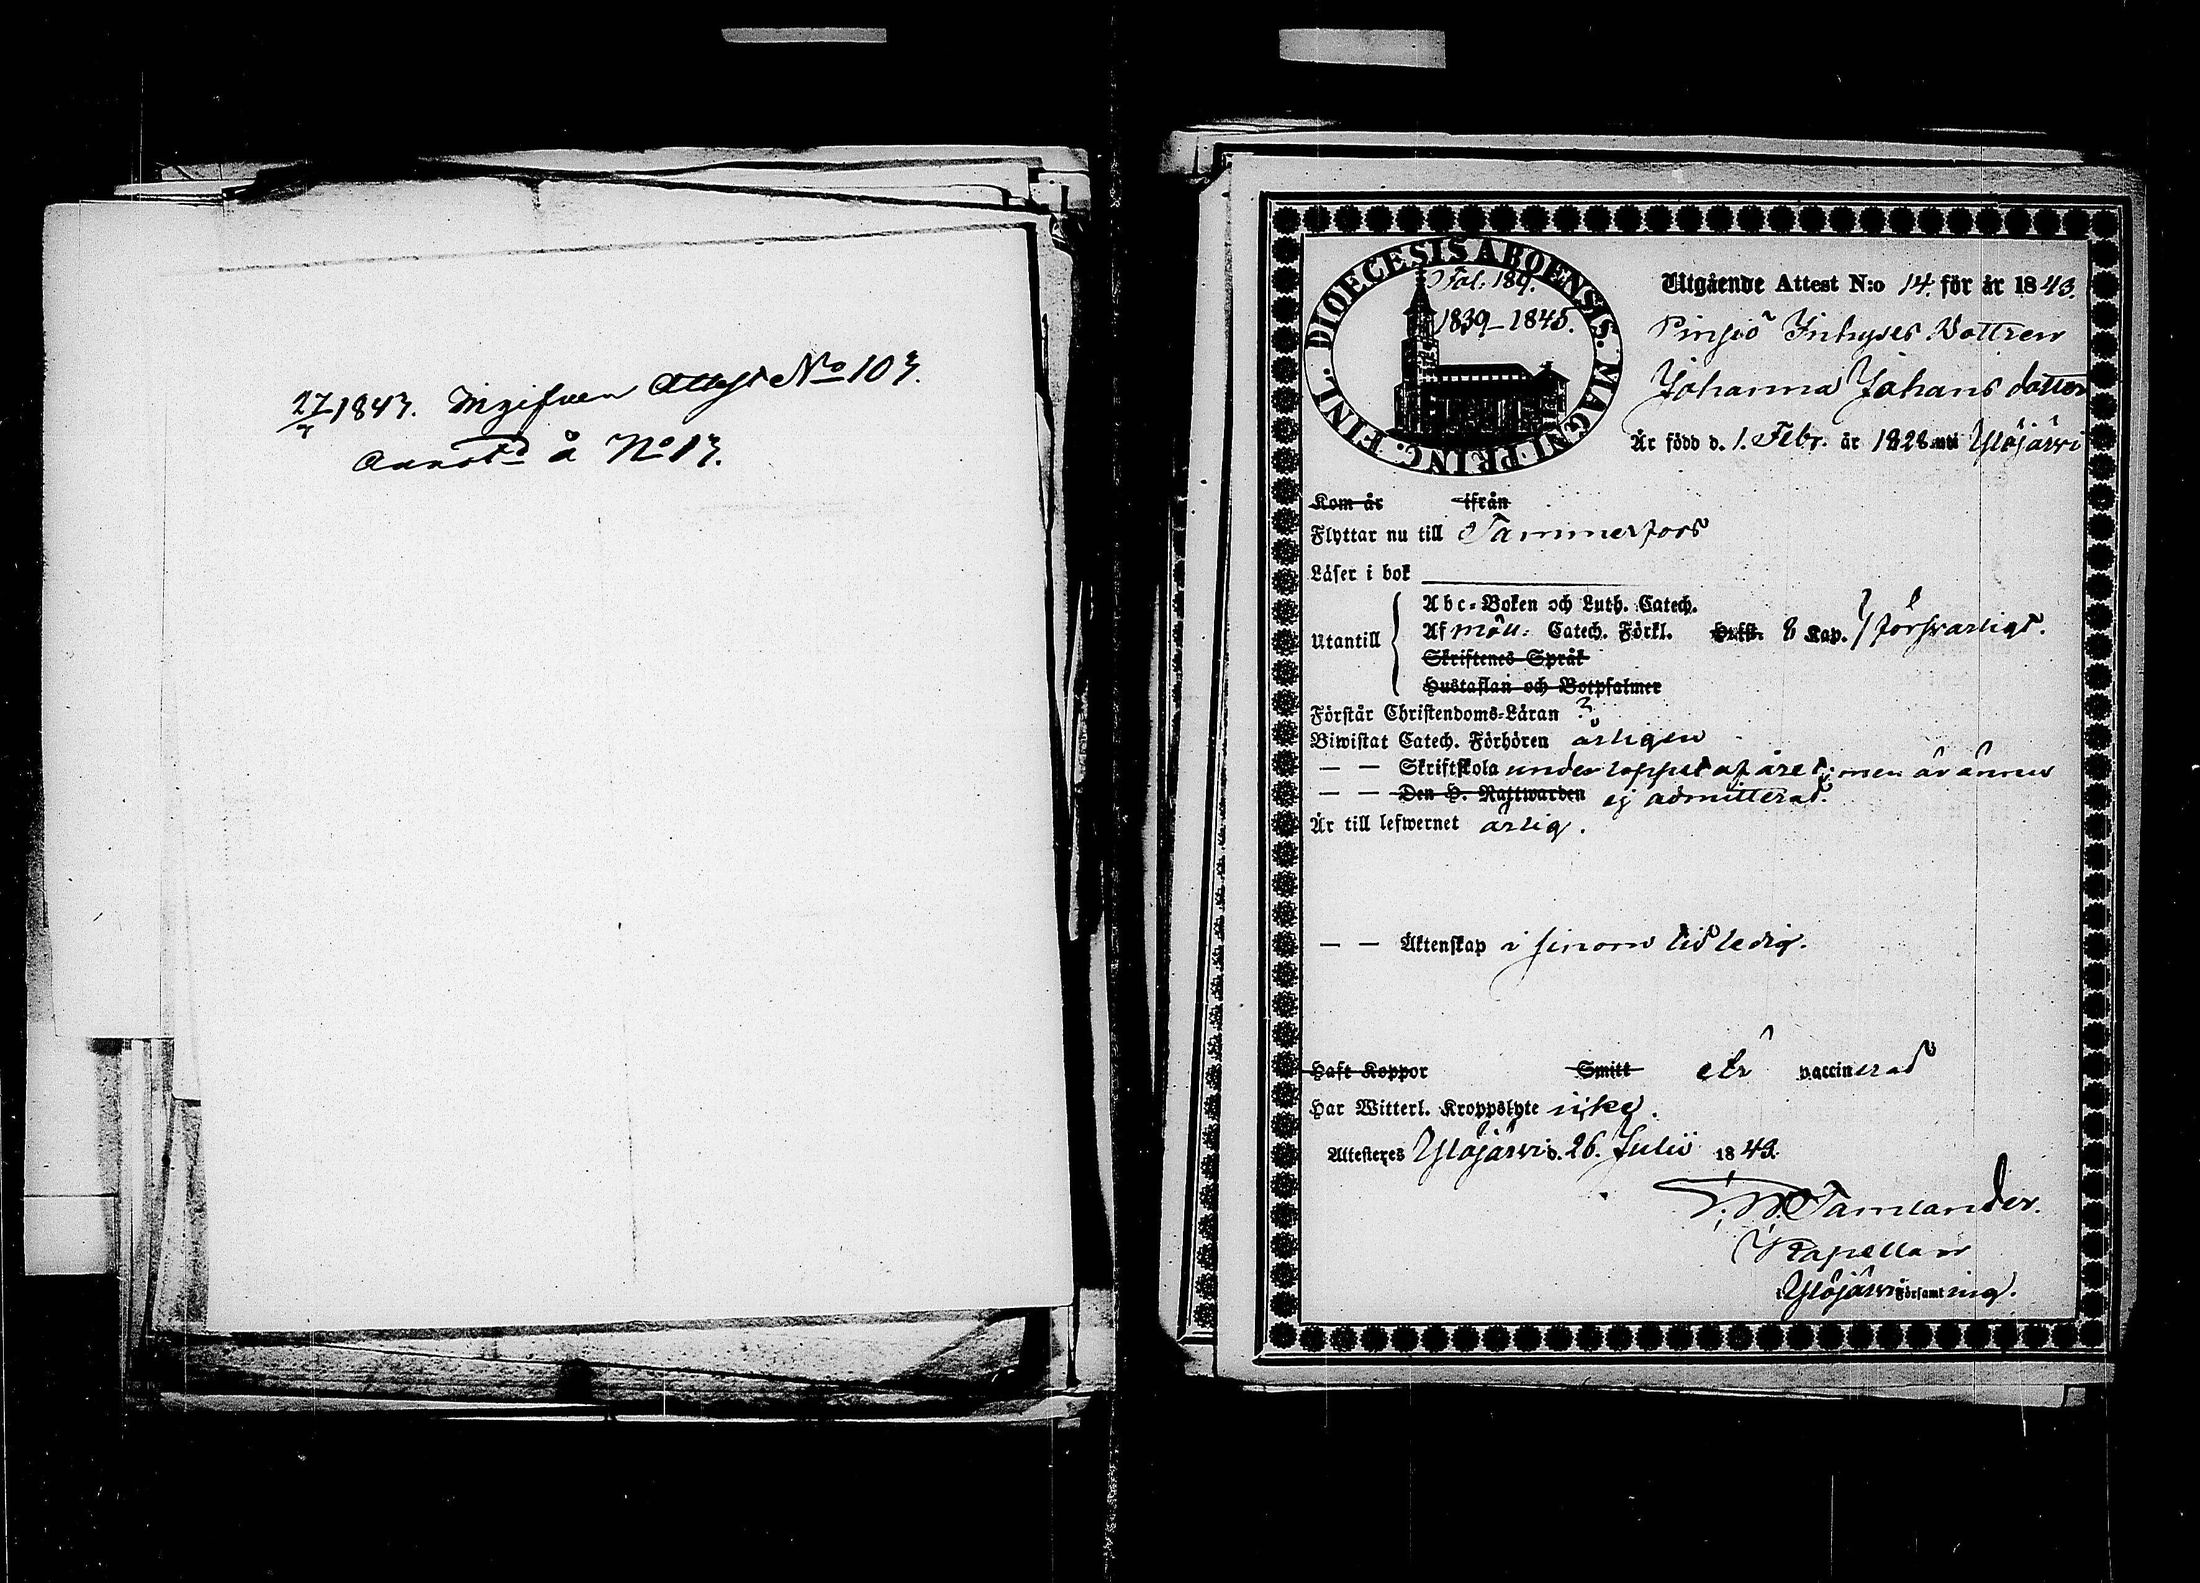 27/7 1843. Ingifven Attest No 103.
Annotd å No 13.
DIOECESIS ABOENSIS. MAGNI PRINC. FINL.
Fol. 189.
1839–1845.
Utgående Attest N:o 14. för år 1843.
Pinsiö Inhyses Dottren
Johanna Johans dotter
Är född d. 1. Febr. år 1828 uti Ylöjärvi
Kom år ifrån
Flyttar nu till Tammerfors
Läser i bok
Utantill
Abc-Boken och Luth. Catech.
Af möll: Catech. Förkl. Hufst. 8 Kap. försvarligt.
Skriftenes Språk
Hustaflan och Botpsalmer
Förstår Christendoms-Läran ?
Biwistat Catech. Förhören årligen
— — Skriftskola under loppet af året, men är ännu
— — Den H. Nattwarden ej admitterad.
Är till lefwernet ärlig.
— — Äktenskap i sinom tid ledig.
Haft Koppor Smitt Är vaccinerad
Har Witterl. Kroppslyte icke.
Attesteres Ylöjärvi d. 26. Julii 1843.
Tamlander.
Kapellan
i Ylöjärvi Församling.